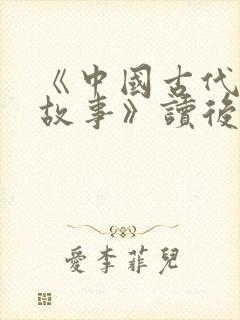 《中國古代
故事》讀後
愛李菲兒